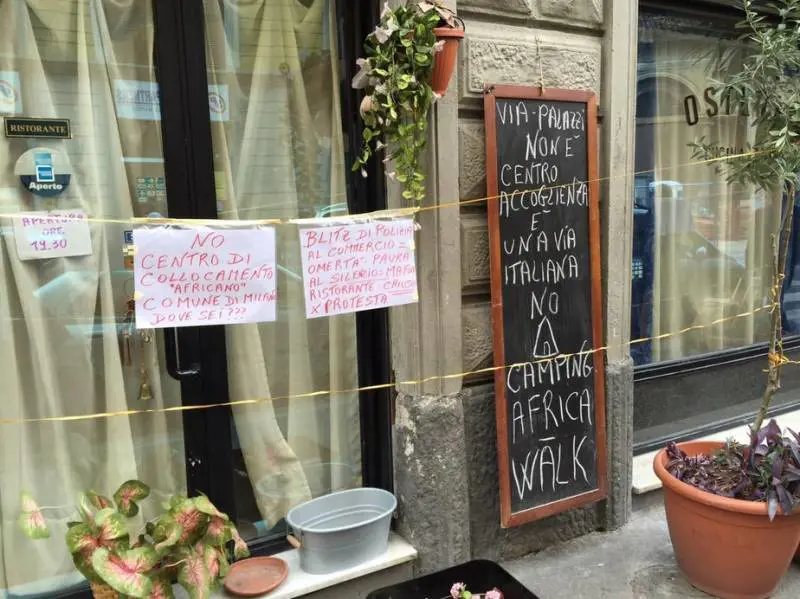 RISTORANTE
Aperto
APERTURA
ORE
19.30
NO
CENTRO DI
COLLOCAMENTO
"AFRICANO"
COMUNE DI MILANO
DOVE SEI???
BLITZ DI POLIZIA
AL COMMERCIO =
OMERTÀ - PAURA
AL SILENZIO = MAFIA
RISTORANTE CHIUSO
X PROTESTA
VIA - PALAZZI
NON È
CENTRO
ACCOGLIENZA
È
UNA VIA
ITALIANA
NO
CAMPING
AFRICA
WALK